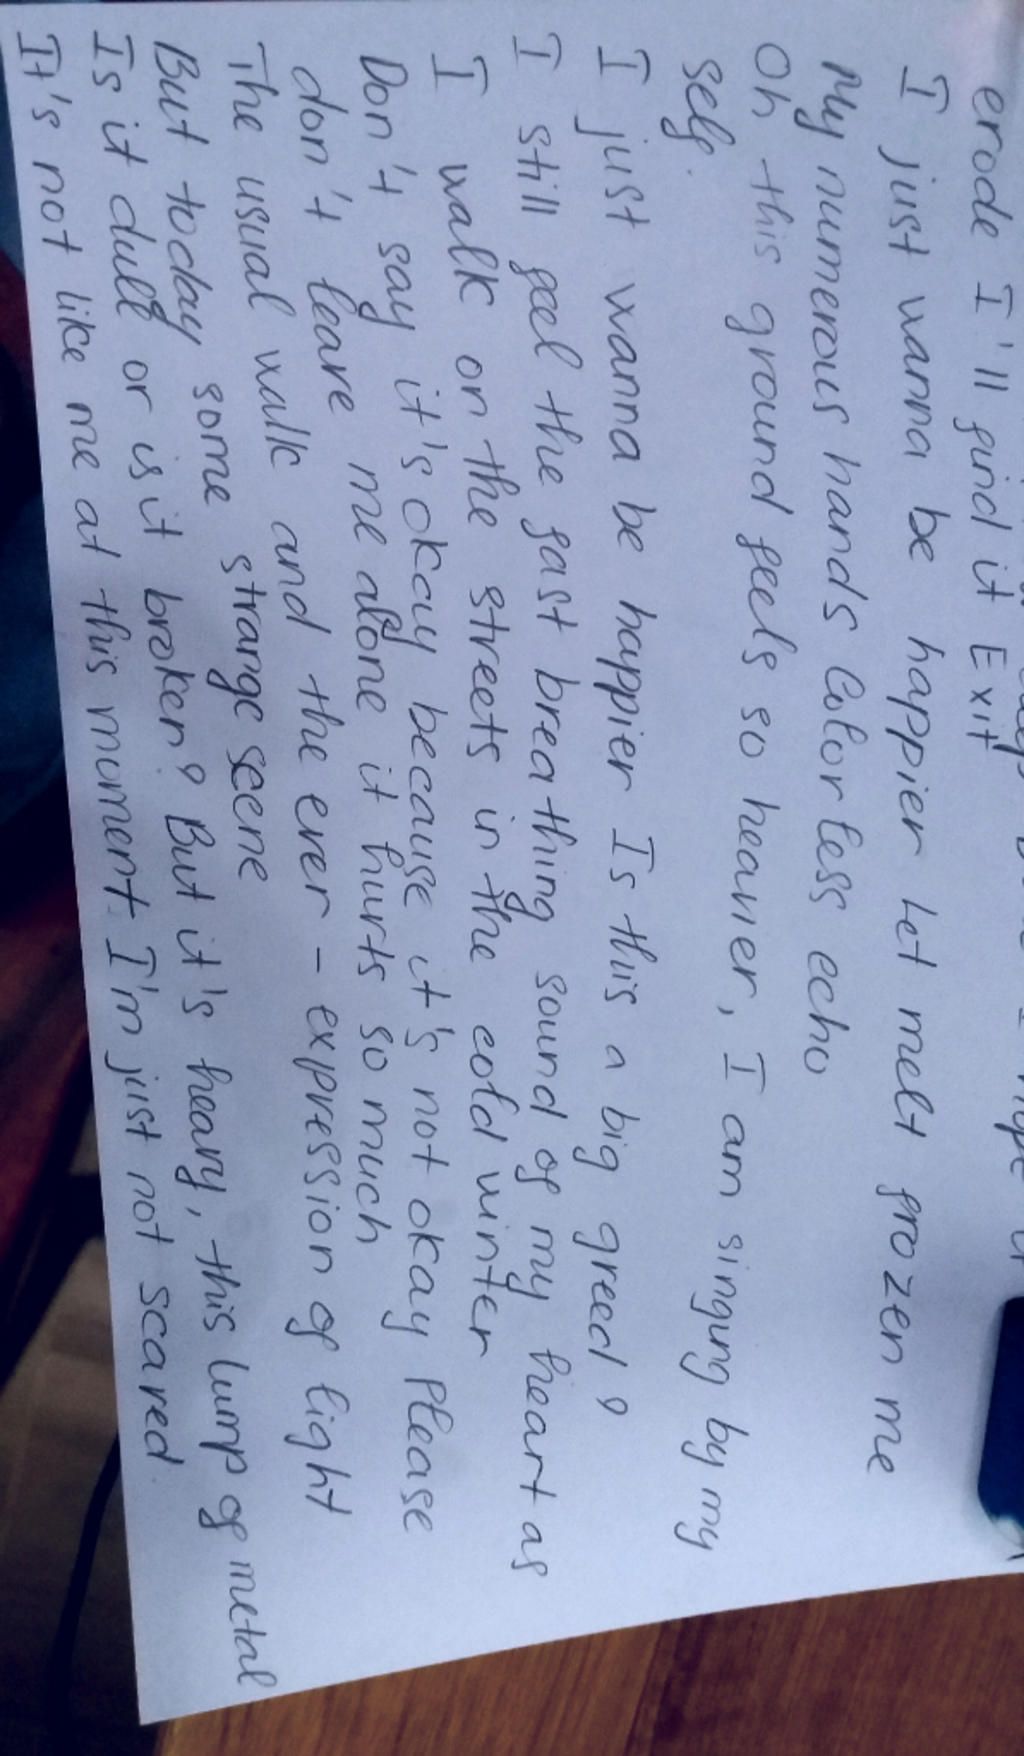 erode I'll find it Exit
I just wanna be happier Let melt frozen me
My numerous hands Colorless echo
Oh this ground feels so heavier, I am singing by my
self.
I just wanna be happier Is this a big greed?
I still feel the fast breathing sound of my heart as
I walk on the streets in the cold winter
Don't say it's okay because it's not okay Please
don't leave me alone it hurts so much
The usual walk and the ever - expression of light
But today some strange scene
Is it dull or is it broken? But it's heavy, this lump of metal
It's not like me at this moment I'm just not scared.